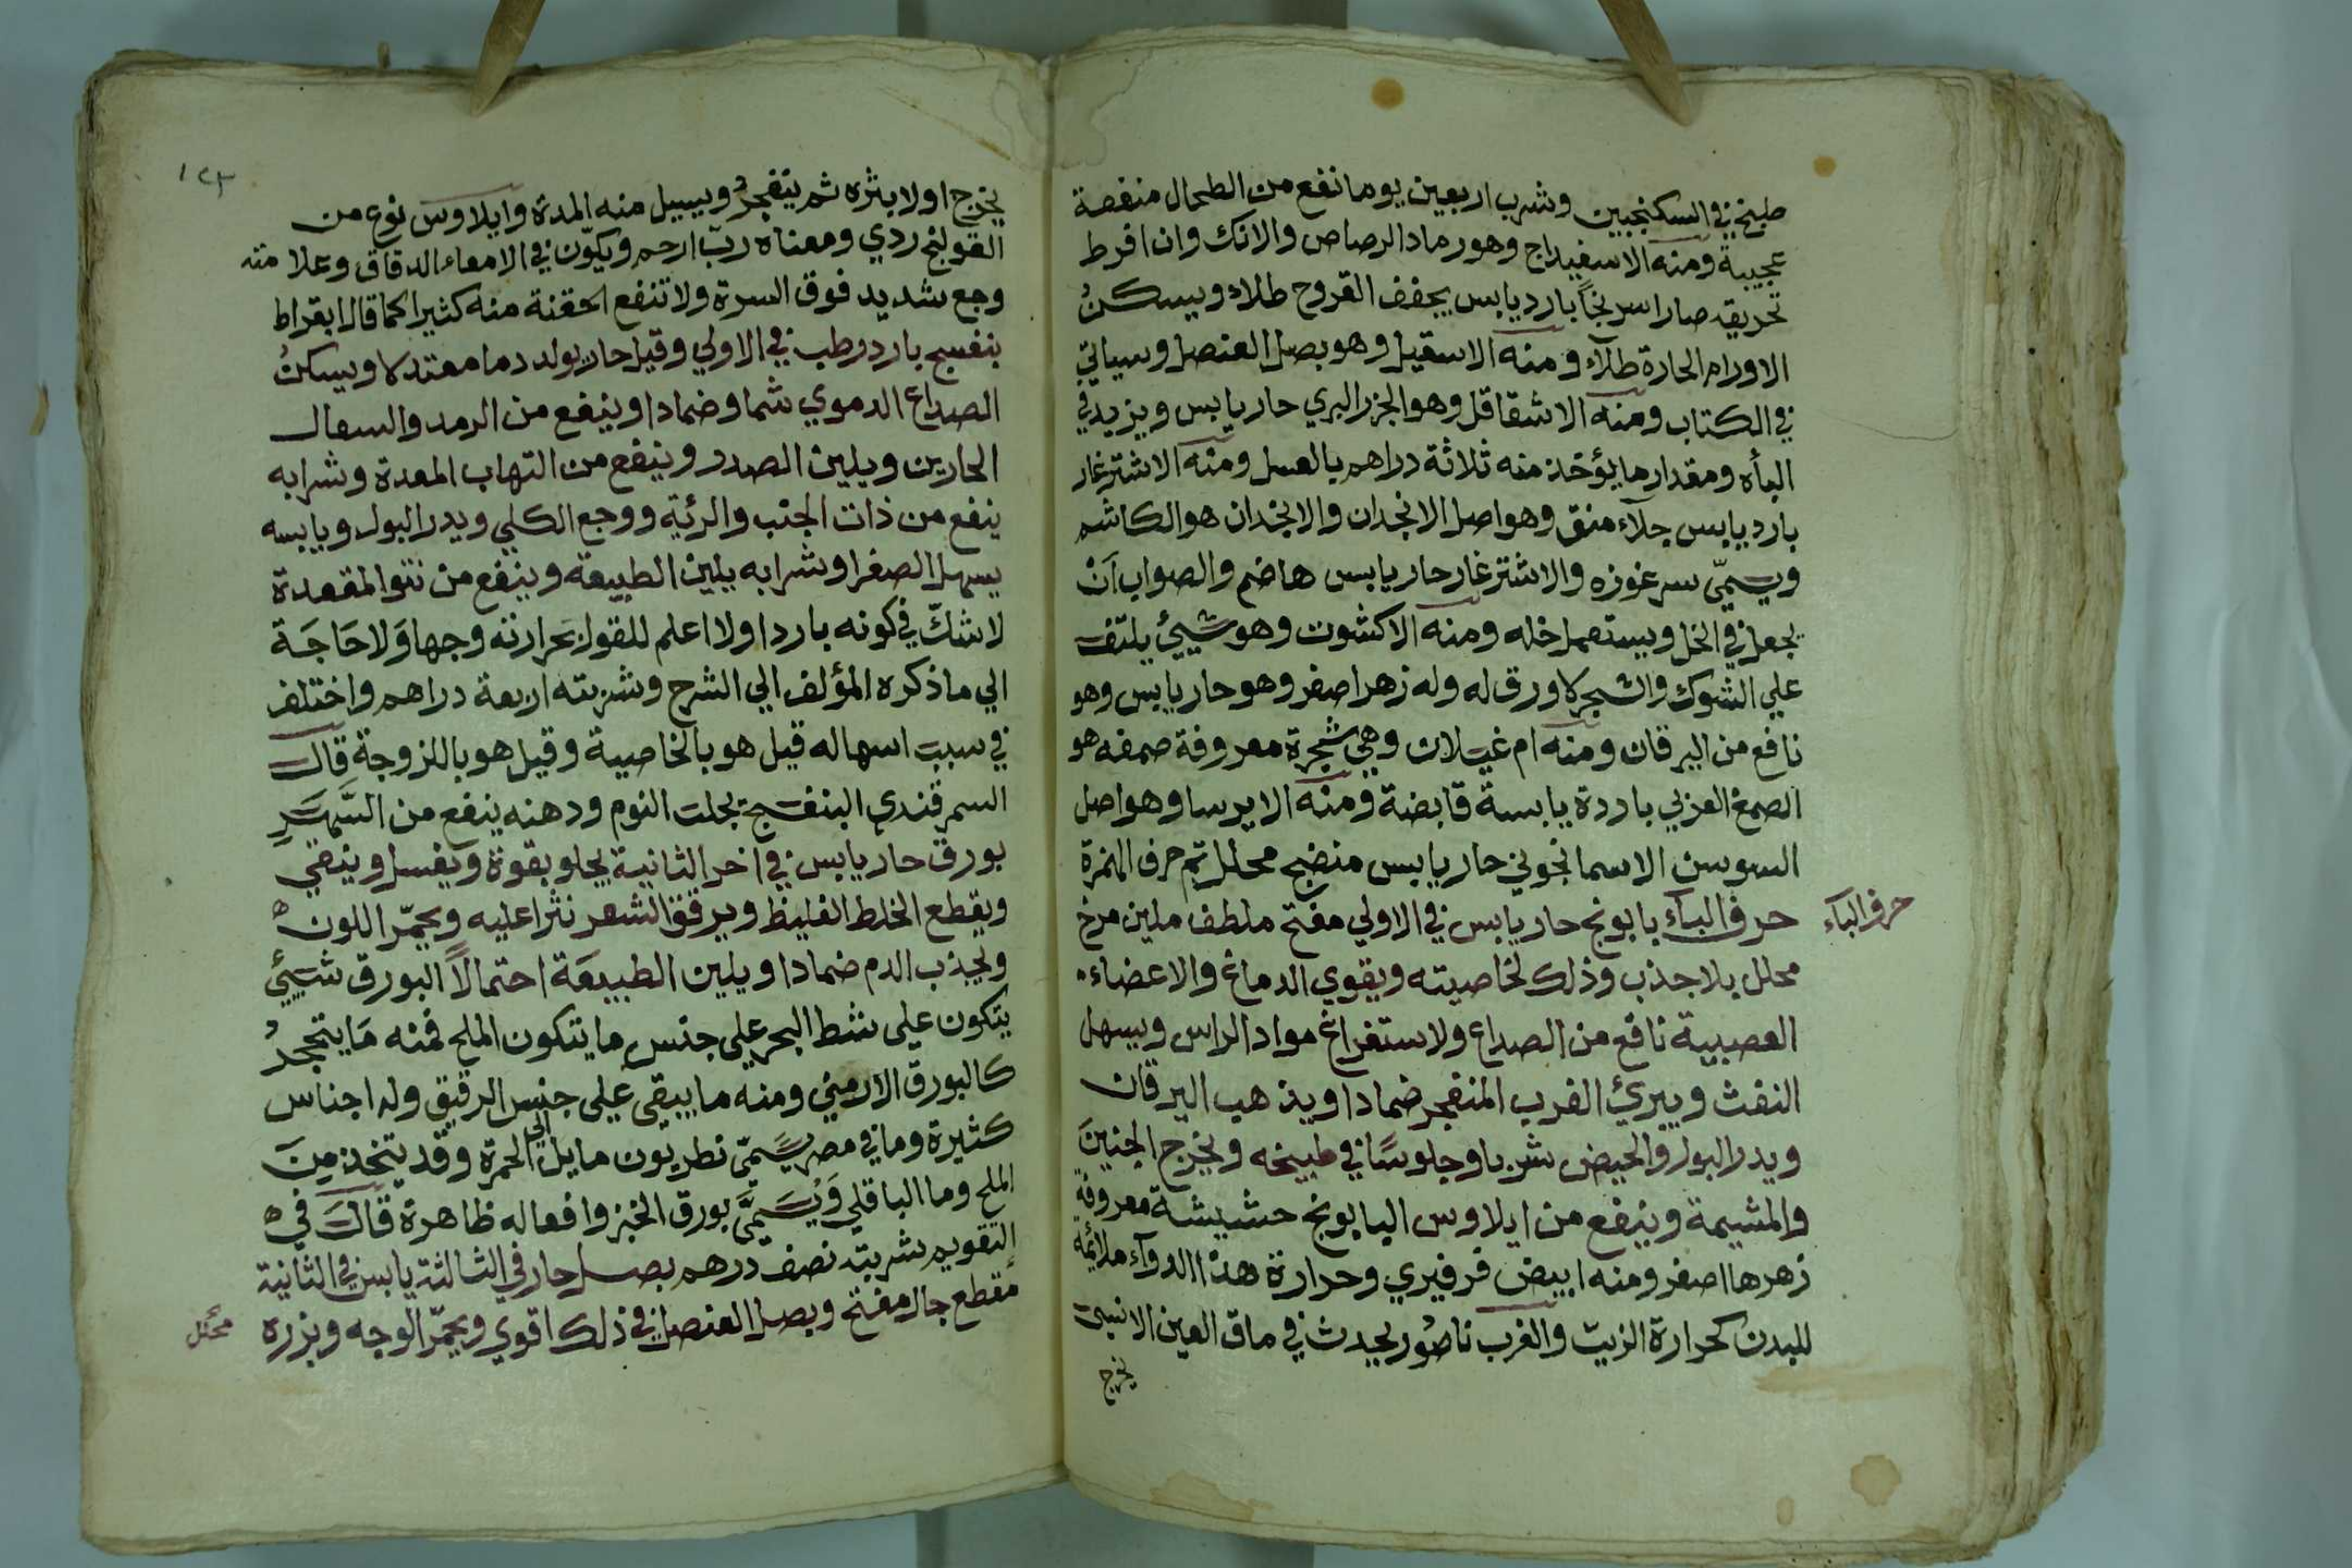 طبخ في السكنجبين وشرب اربعين يوما نفع من الطحال منفعة
عجيبة ومنه الاسفيداج وهو رماد الرصاص والانك وان افرط
تحريقه صار اسرنجًا بارد يابس يجفف القروح طلاء ويسكنُ
الاورام الحارة طلآء ومنه الاسقيل وهو بصل العنصل وسياتي
في الكتاب ومنه الاشقاقل وهو الجزر البري حار يابس ويزيد في
الباه ومقدار ما يؤخذ منه ثلاثة دراهم بالعسل ومنه الاشترغار
بارد يابس جلآء منق وهو اصل الانجدان والانجدان هو الكاشم
ويسمّى سرغوزه والاشترغار حار يابس هاضم والصواب اَنْ
يجعل في الخل ويستعمل خله ومنه الاكشوت وهو شيئ يلتف
علي الشوك والشجر لا ورق له وله زهر اصفر وهو حار يابس وهو
نافع من اليرقان ومنه ام غيلان وهي شجرة معروفة صمغه هو
الصمغ العربي باردة يابسة قابضة ومنه الايرسا وهو اصل
السوسن الاسمانجوني حار يابس منضج محلل تم حرف الهمزة
حرف البآء بابونج حار يابس في الاولي مفتح ملطف ملين مرخ
حرف البآء
محلل بلا جذب وذلك لخاصيته ويقوي الدماغ والاعضاء
العصبية نافع من الصداع ولاستفراغ مواد الراس ويسهل
النفث ويبرئ الغرب المنفجر ضمادا ويذهب اليرقان
ويدر البول والحيض شربا وجلوسًا في طبيخه ويخرج الجنينَ
والمشيمة وينفع من ايلاوس البابونج حشيشة معروفة
زهرها اصفر ومنه ابيض فرفيري وحرارة هذا الدوآء ملائمة
للبدن كحرارة الزيت والغرب ناصُور يحدث في ماق العين الانسي
يخرج
١٢٣
يخرج اولا بثره ثم ينفجرُ ويسيل منه المدة وايلاوس نوع من
القولنج ردي ومعناه ربّ ارحم ويكوّن في الامعاء الدقاق وعلامته
وجع شديد فوق السرة ولا تنفع الحقنة منه كثيرا كما قال ابقراط
بنفسج بارد رطب في الاولي وقيل حار يولد دما معتدلا ويسكنُ
الصداع الدموي شما وضمادا وينفع من الرمد والسعال
الحارين ويلين الصدر وينفع من التهاب المعدة وشرابه
ينفع من ذات الجنب والرئية ووجع الكلي ويدر البول ويابسه
يسهل الصفرا وشرابه يلين الطبيعة وينفع من نتو المقعدة
لا شكّ في كونه باردا ولا اعلم للقول بحرارته وجها وَلا حَاجَة
الي ما ذكره المؤلف الي الشرح وشربته اربعة دراهم واختلف
في سبب اسهاله قيل هو بالخاصية وقيل هو باللزوجة قال
السمرقندي البنفسج يجلب النوم ودهنه ينفع من السَّهَرِ
بورق حار يابس في اخر الثانية يجلو بقوة ويغسل وينقي
ويقطع الخلط الغليظ ويرقق الشعر نثرا عليه ويحمّر اللون
ويجذب الدم ضمادا ويلين الطبيعَة احتمالًا البورق شيئ
يتكون علي شط البحر علي جنس ما يتكون الملح فمنه مَا يتحجرُ
كالبورق الارمني ومنه ما يبقي علي جنس الرقيق وله اجناس
كثيرة وما في مصر يسَمّي نطريون مايل الي الحمرة وقد يتخذ مِنَ
الملح وما الباقلي وَيُسَمَّي بورق الخبز وافعاله ظاهرة قال في
التقويم شربته نصف درهم بصل حار في الثالثة يابس في الثانية
مقطع جال مفتح وبصل العنصل في ذلك اقوي ويحمّر الوجه وبزره
محلل